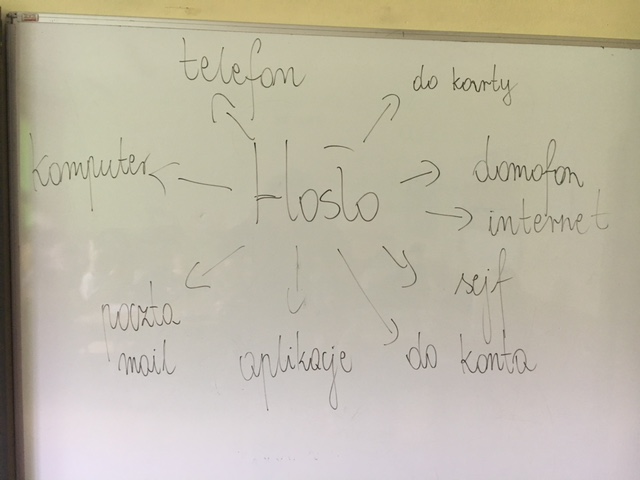 telefon
do karty
komputer
Hasło
domofon
internet
sejf
poczta
mail
aplikacje
do konta